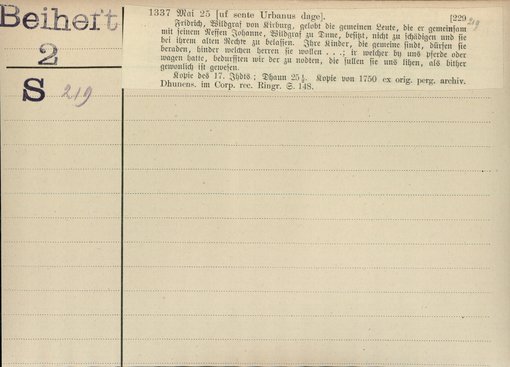 Beiheft
2
S 219
1337 Mai 25 [uf sente Urbanus dage]. [229 219
Fridrich, Wildgraf von Kirburg, gelobt die gemeinen Leute, die er gemeinsam
mit seinem Neffen Johanne, Wildgraf zu Dune, besitzt, nicht zu schädigen und sie
bei ihrem alten Rechte zu belassen. Ihre Kinder, die gemeine sind, dürfen sie
beraden, hinder welchen herren sie wollen . . .; ir welcher by uns pferde oder
wagen hatte, bedurfften wir der zu nodten, die sullen sie uns lihen, als bither
gewonlich ist gewesen.
Kopie des 17. Jhdts; Dhaun 25 Kopie von 1750 ex orig. perg. archiv.
Dhunens. im Corp. rec. Ringr. S. 148.